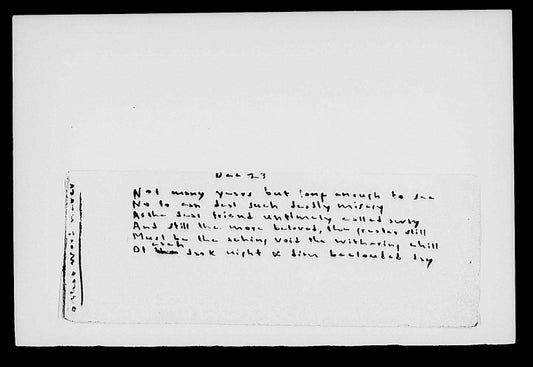 Dec 23
Not many years but long enough to see
No foe can deal such deadly misery
As the dear friend untimely called away
And still the more beloved, the greater still
Must be the aching void the withering chill
Of each dark night & dim beclouded day